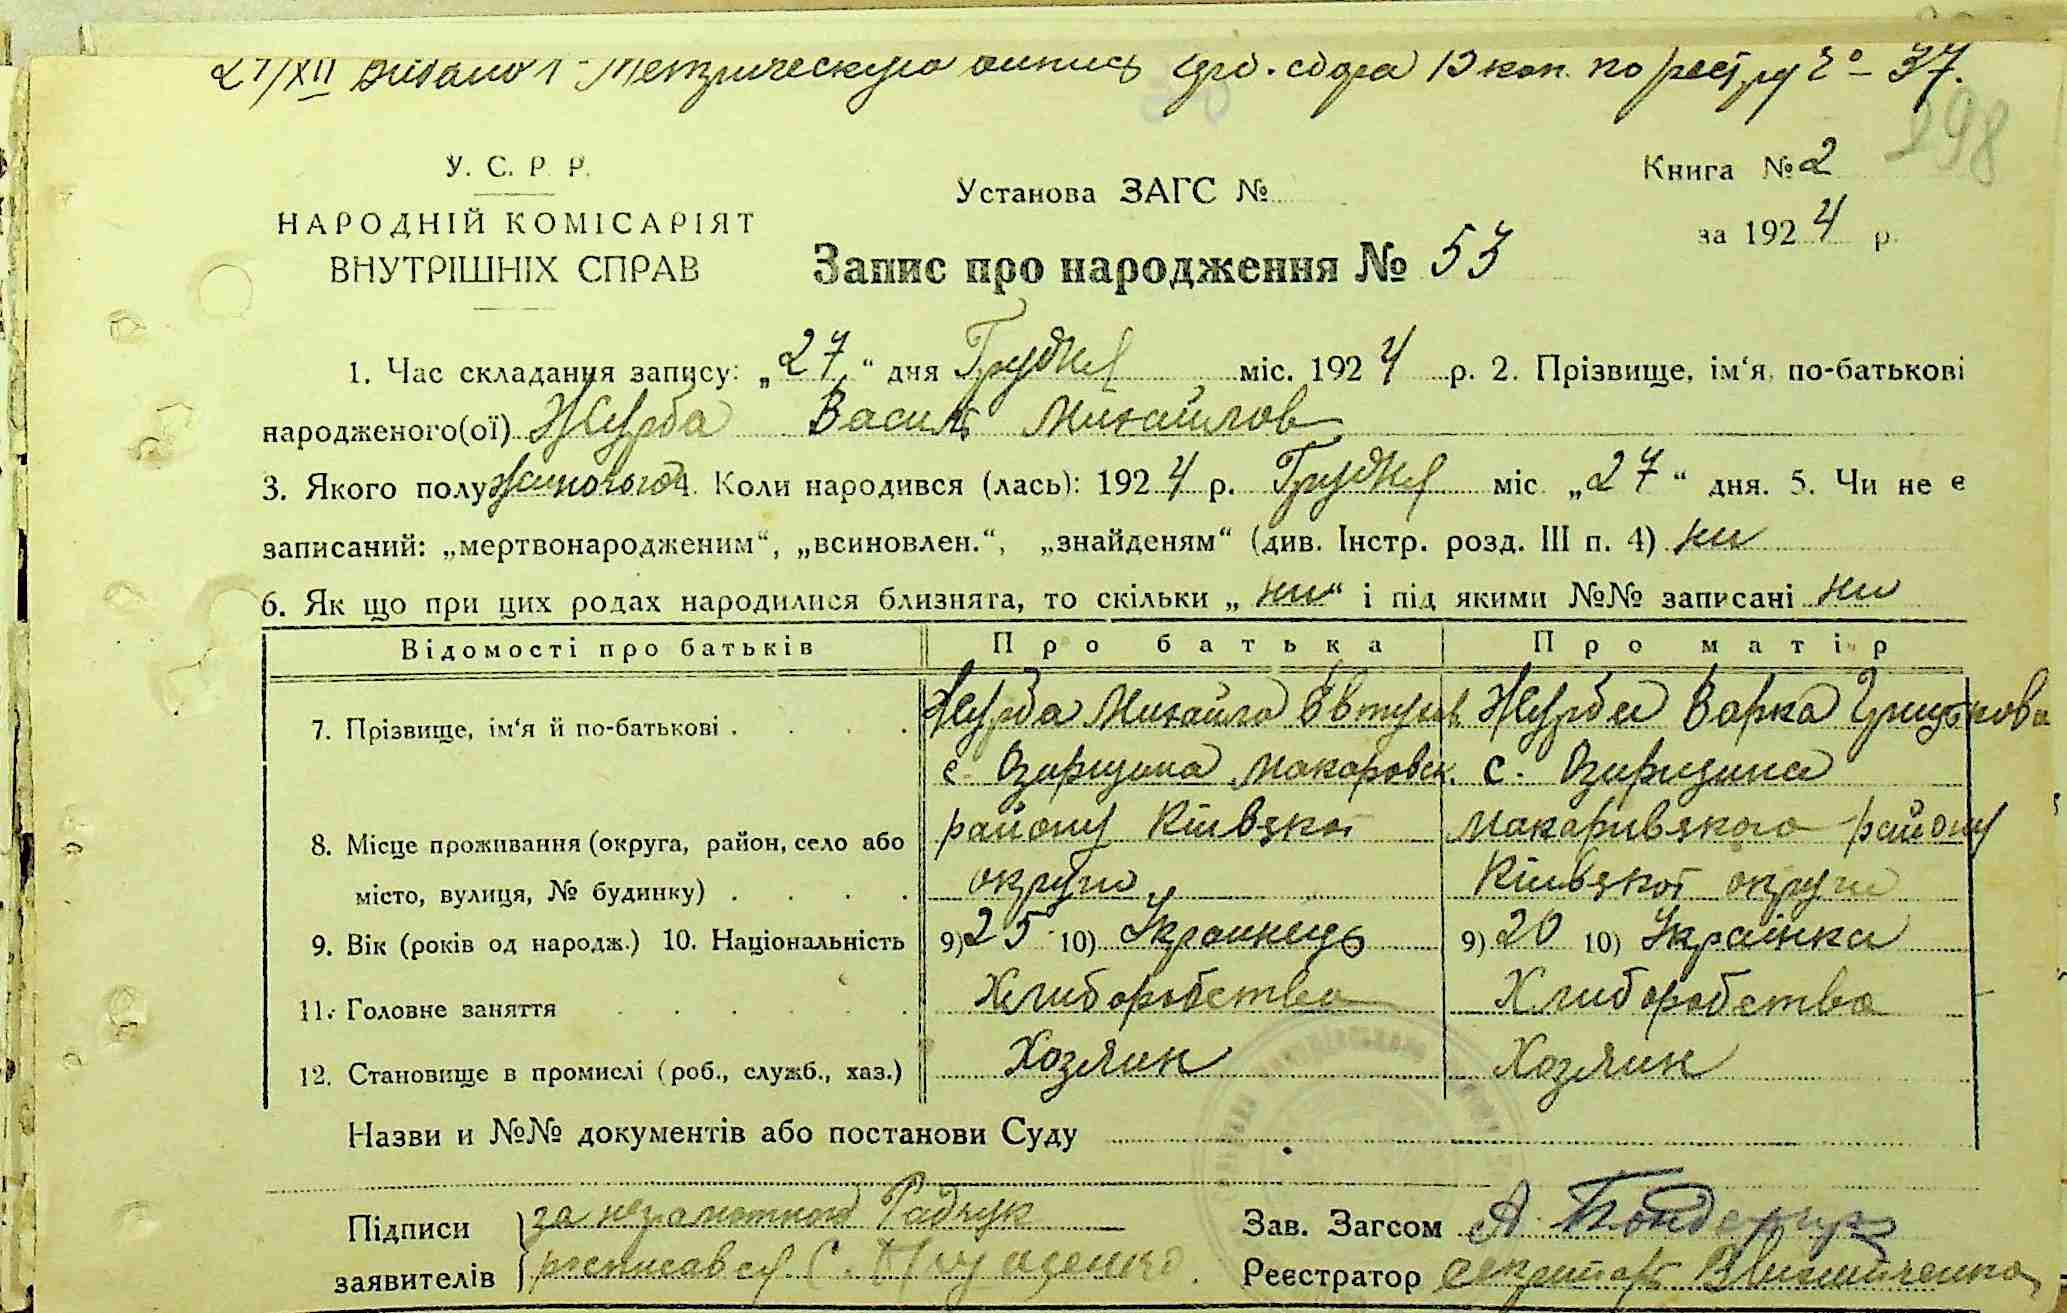 27/XII Видано 1 Метрическую випись сбора 15 коп. по реестру № 37.
298
У. С. Р. Р.
НАРОДНІЙ КОМІСАРІЯТ
ВНУТРІШНІХ СПРАВ
Установа ЗАГС №
Книга № 2
за 1924 р.
Запис про народження № 53
1. Час складання запису: „27“ дня Грудня міс. 1924 р. 2. Прізвище, ім‘я, по-батькові
народженого(ої) Журба Василь Михайлов
3. Якого полу 4. Коли народився (лась): 1924 р. Грудня міс. „27“ дня. 5. Чи не є
записаний: „мертвонародженим“, „всиновлен.“, „знайденям“ (див. Інстр. розд. III п. 4) ни
6. Як що при цих родах народилися близнята, то скільки „ни“ і під якими №№ записані ни
Відомості про батьків Про батька Про матір
7. Прізвище, ім‘я й по-батькові . . . . Журба Михайло Євтухів Журба Варка Грицькова
с. Озирщина Макаровск. с. Озирщина
8. Місце проживання (округа, район, село або району Київзкоі Макаривзкого району
місто, вулиця, № будинку) . . . . округи Київзкоі округи
9. Вік (років од народж.) 10. Національність 9) 25 10) Українець 9) 20 10) Українка
11. Головне заняття . . . . . . Хлиборобство Хлиборобство
12. Становище в промислі (роб., служб., хаз.) Хозяин Хозяин
Назви и №№ документів або постанови Суду
Підписи за неграмотного Радчук Зав. Загсом А.
заявителів росписався С. Реєстратор секритарь